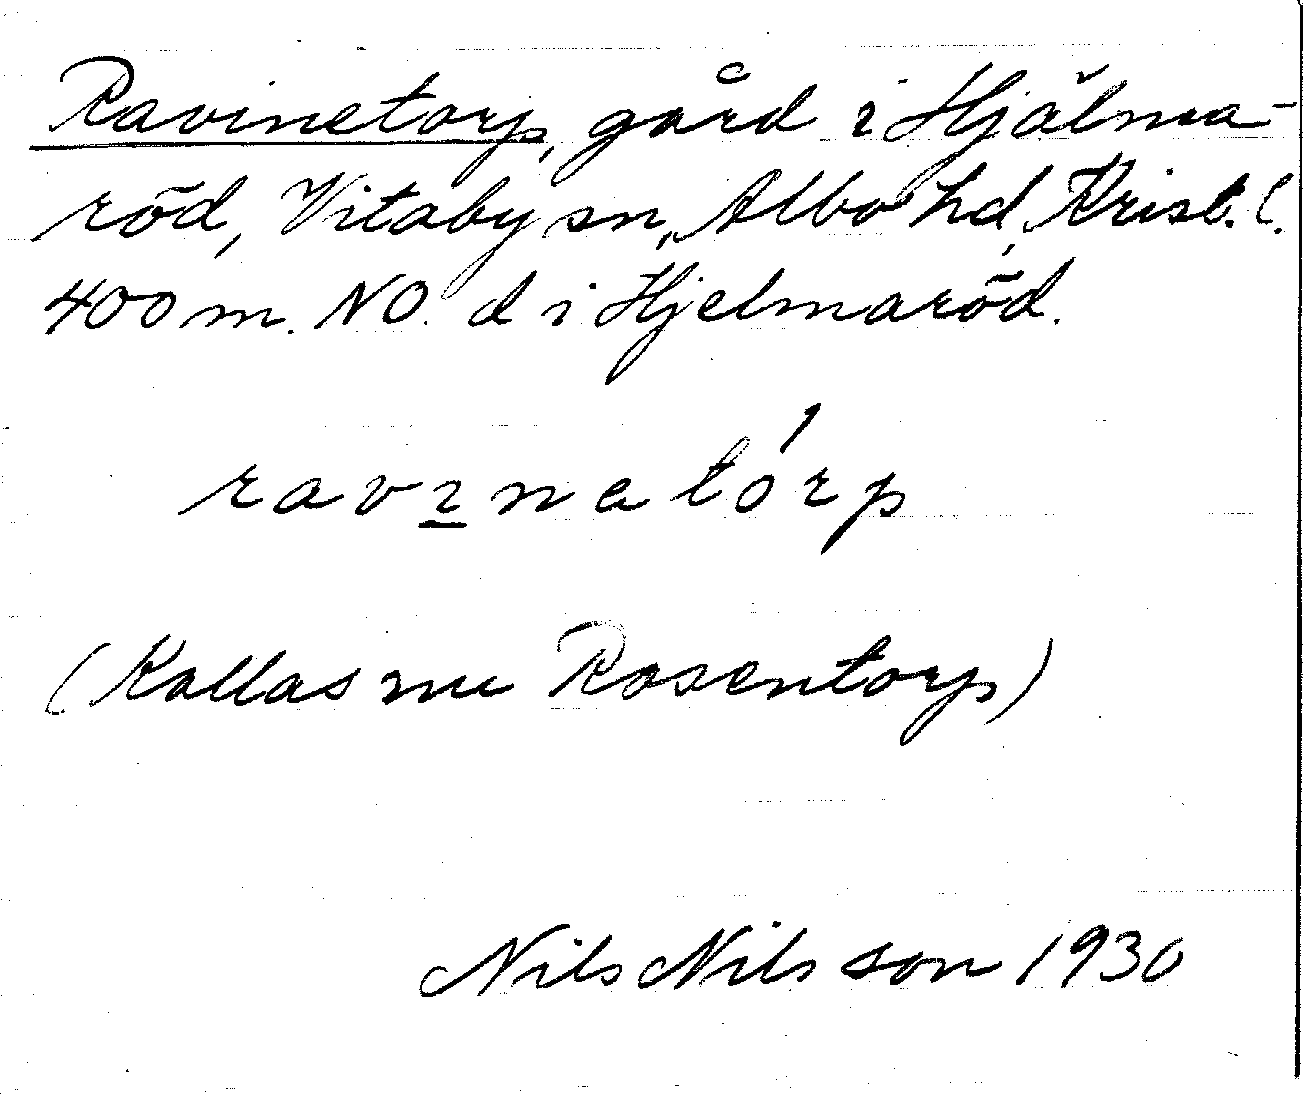 Ravinetorp, gård i Hjälma-
röd, Vitaby sn, Albo hd, Krist. l.
400 m. NO. d i Hjelmaröd.
ravınatórp
(Kallas nu Rosentorp)
Nils Nilsson 1930